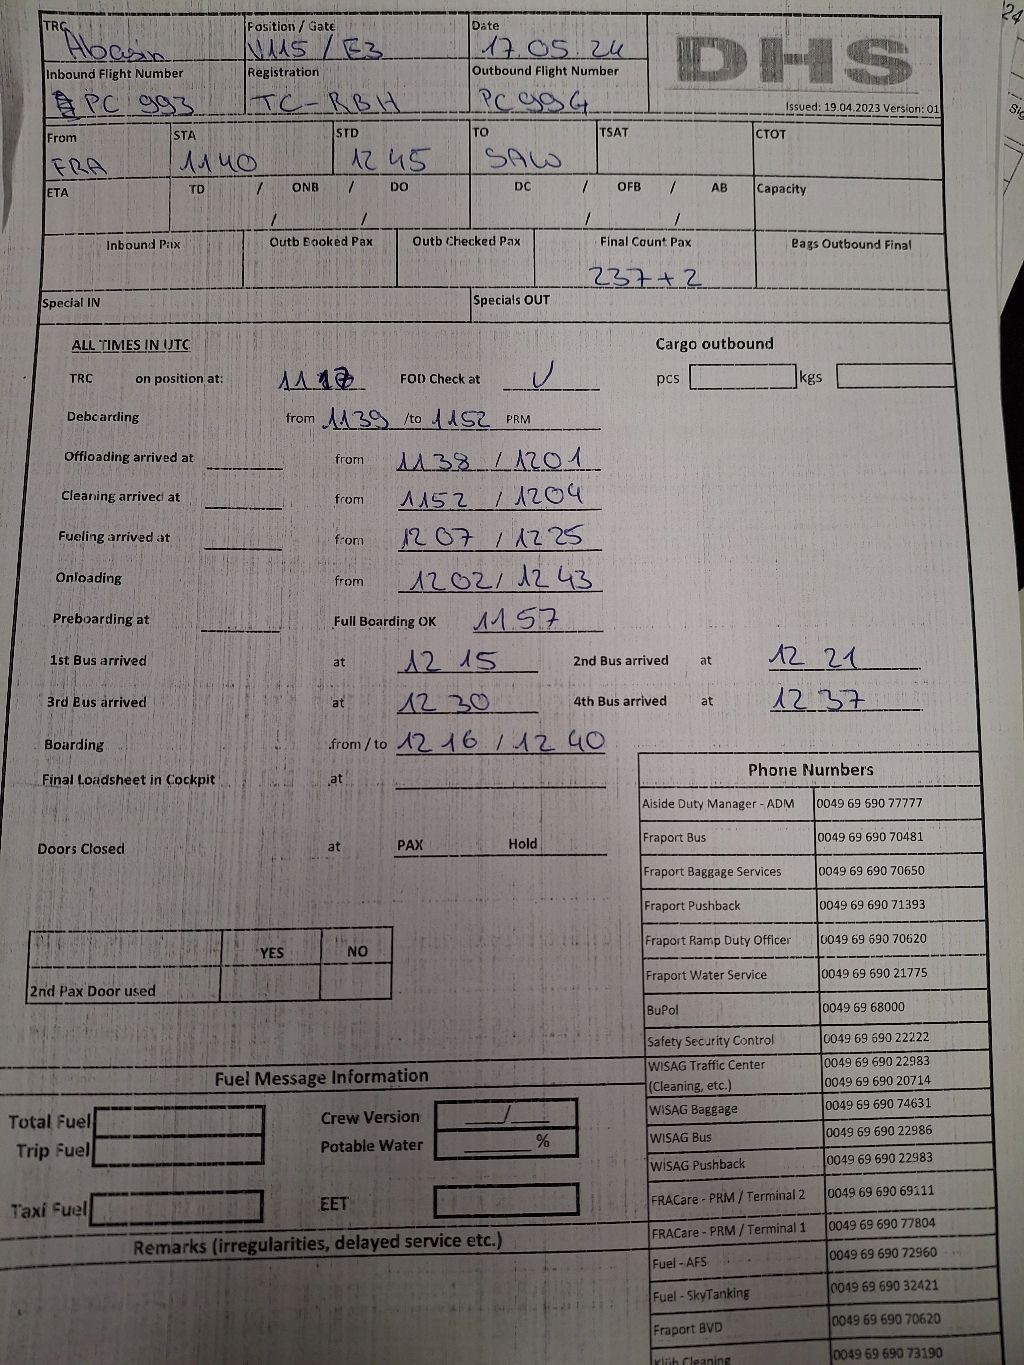 24
TRC Position / Gate Date
Abasin V115 / E3 17.05.24
DHS
Inbound Flight Number Registration Outbound Flight Number
PC 993 TC-RBH PC 994
Issued: 19.04.2023 Version: 01
From STA STD TO TSAT CTOT
FRA 1140 1245 SAW
ETA TD / ONB / DO DC / OFB / AB Capacity
/ / / /
Inbound Pax Outb Booked Pax Outb Checked Pax Final Count Pax Bags Outbound Final
237+2
Special IN Specials OUT
ALL TIMES IN UTC Cargo outbound
TRC on position at: 11 FOD Check at ✓ pcs kgs
Deboarding from 1139 /to 1152 PRM
Offloading arrived at from 1138 / 1201
Cleaning arrived at from 1152 / 1204
Fueling arrived at from 1207 / 1225
Onloading from 1202 / 1243
Preboarding at Full Boarding OK 1157
1st Bus arrived at 12 15 2nd Bus arrived at 12 21
3rd Bus arrived at 12 30 4th Bus arrived at 12 37
Boarding from / to 1216 / 1240
Final Loadsheet in Cockpit at
Doors Closed at PAX Hold
YES NO
2nd Pax Door used
Phone Numbers
Aiside Duty Manager - ADM 0049 69 690 77777
Fraport Bus 0049 69 690 70481
Fraport Baggage Services 0049 69 690 70650
Fraport Pushback 0049 69 690 71393
Fraport Ramp Duty Officer 0049 69 690 70620
Fraport Water Service 0049 69 690 21775
BuPol 0049 69 68000
Safety Security Control 0049 69 690 22222
WISAG Traffic Center 0049 69 690 22983
(Cleaning, etc.) 0049 69 690 20714
WISAG Baggage 0049 69 690 74631
WISAG Bus 0049 69 690 22986
WISAG Pushback 0049 69 690 22983
FRACare - PRM / Terminal 2 0049 69 690 69111
FRACare - PRM / Terminal 1 0049 69 690 77804
Fuel - AFS 0049 69 690 72960
Fuel - SkyTanking 0049 69 690 32421
Fraport BVD 0049 69 690 70620
Klüh Cleaning 0049 69 690 73190
Fuel Message Information
Total Fuel Crew Version /
Trip Fuel Potable Water %
Taxi Fuel EET
Remarks (irregularities, delayed service etc.)